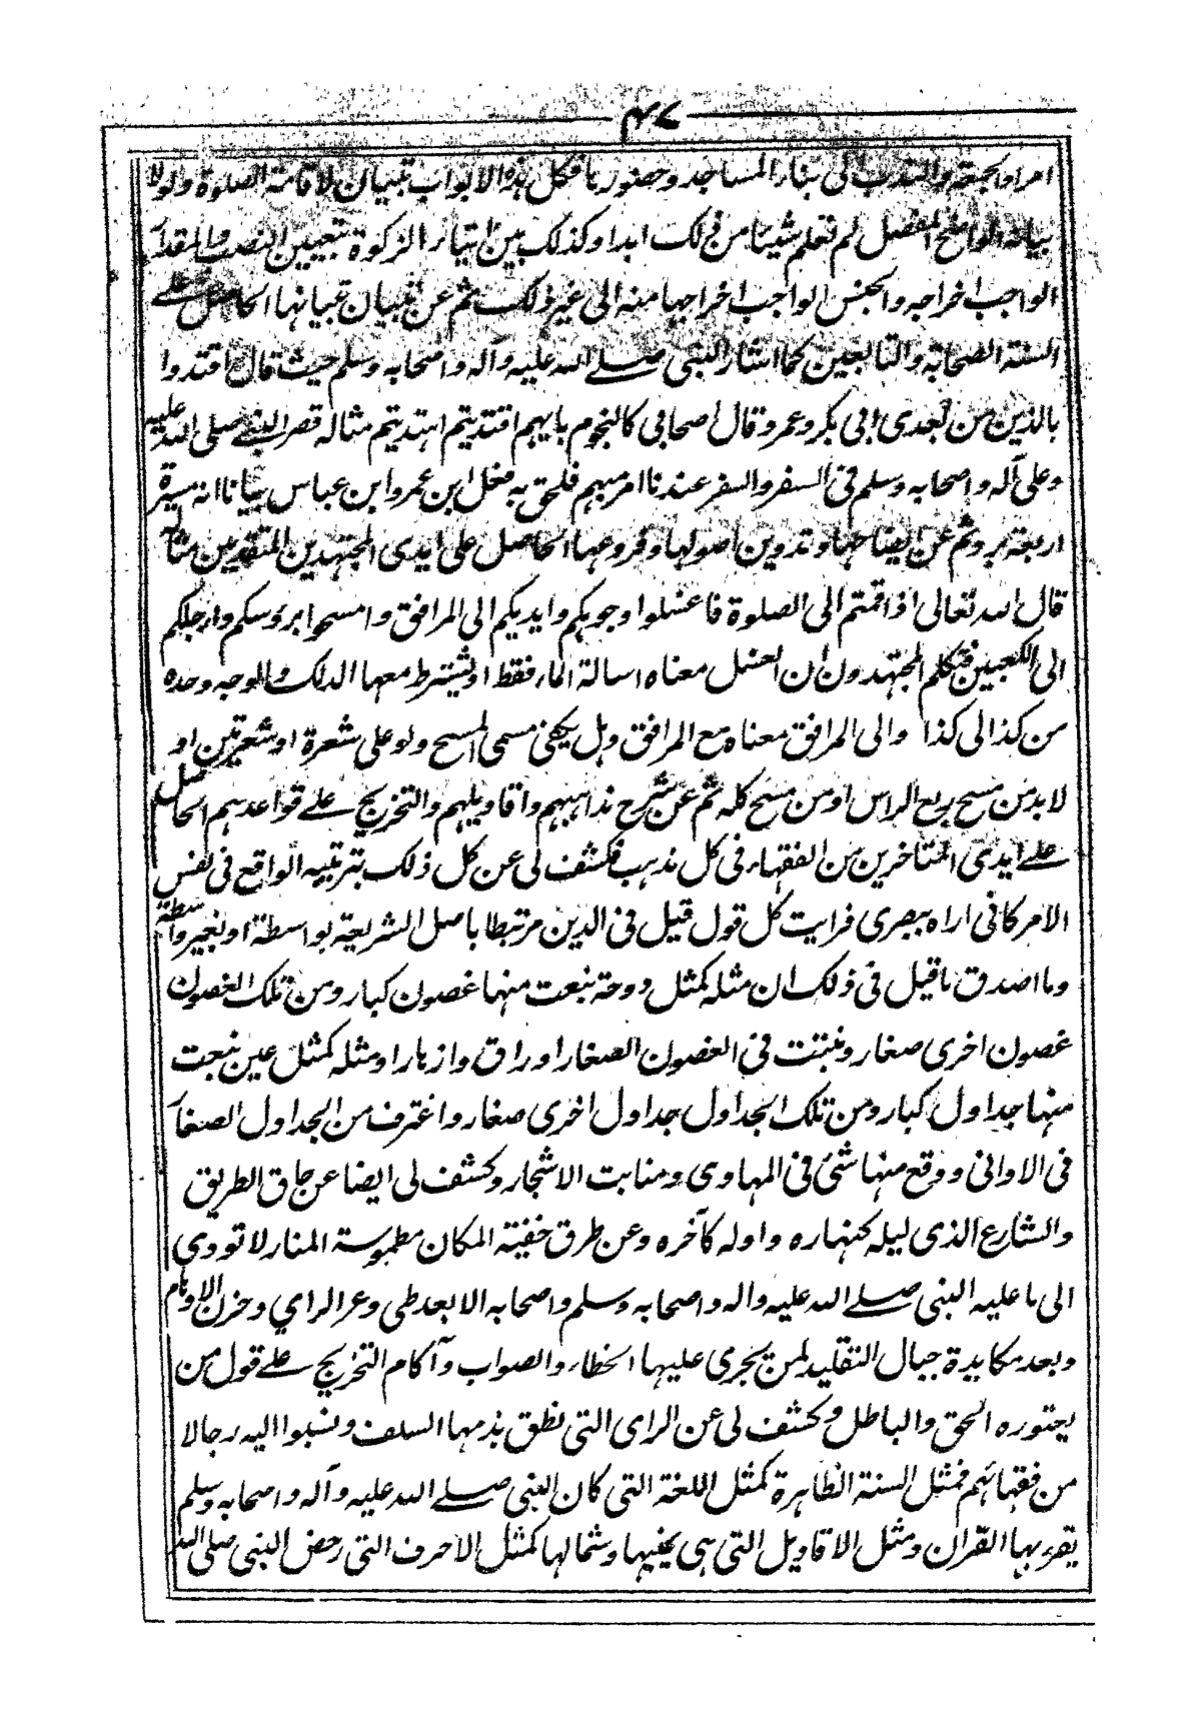 ۴۷
امرا والجمعة والندب الى بناء المساجد وحضورها فكل هذه الابواب تبيان لاقامة الصلوة ولولا
بيانه الواضح المفصل لم نعلم شيئا من ذلك ابدا وكذلك بين ايتاء الزكوة بتعيين النصب والمقدار
الواجب اخراجه والجنس الواجب اخراجها منه الى غير ذلك ثم عن تبيان تبيانها الحاصل على
السنة الصحابة والتابعين كما اشار النبى صلى الله عليه وآله واصحابه وسلم حيث قال اقتدوا
بالذين من بعدى ابى بكر وعمر وقال اصحابى كالنجوم بايهم اقتديتم اهتديتم مثاله قصر النبى صلى الله عليه
وعلى آله واصحابه وسلم فى السفر والسفر عندنا امر مبهم فلحق به فعل ابن عمر وابن عباس بيانا انه مسيرة
اربعة برد ثم عن ايضاحها وتدوين اصولها وفروعها الحاصل على ايدى المجتهدين المتقدمين مثاله
قال الله تعالى اذا قمتم الى الصلوة فاغسلوا وجوهكم وايديكم الى المرافق وامسحوا برؤسكم وارجلكم
الى الكعبين فتكلم المجتهدون ان الغسل معناه اسالة الماء فقط او يشترط معها الدلك والوجه وحده
من كذا الى كذا والى المرافق معناه مع المرافق وهل يكفى مسمى المسح ولو على شعرة او شعرتين او
لابد من مسح ربع الراس او من مسح كله ثم عن شرح مذاهبهم واقاويلهم والتخريج على قواعدهم الحاصل
على ايدى المتاخرين من الفقهاء فى كل مذهب فكشف لى عن كل ذلك بترتيبه الواقع فى نفس
الامر كانى اراه ببصرى فرايت كل قول قيل فى الدين مرتبطا باصل الشريعة بواسطة او بغير واسطة
وما اصدق ما قيل فى ذلك ان مثله كمثل دوحة نبعت منها غصون كبار ومن تلك الغصون
غصون اخرى صغار ونبتت فى الغصون الصغار اوراق وازهار او مثله كمثل عين نبعت
منها جداول كبار ومن تلك الجداول جداول اخرى صغار واغترف من الجداول الصغار
فى الاوانى ووقع منها شئ فى المهاوى ومنابت الاشجار وكشف لى ايضا عن حاق الطريق
والشارع الذى ليله كنهاره واوله كآخره وعن طرق خفية المكان مطموسة المنار لا تودى
الى ما عليه النبى صلى الله عليه واله واصحابه وسلم واصحابه الا بعد طى وعر الراي وحزن الاوهام
وبعد مكابدة جبال التقليد لمن يجرى عليها الخطاء والصواب وآكام التخريج على قول من
يعتوره الحق والباطل وكشف لى عن الراى التى نطق بذمها السلف ونسبوا اليه رجالا
من فقهائهم فمثل السنة الظاهرة كمثل اللغة التى كان النبى صلى الله عليه وآله واصحابه وسلم
يقرء بها القران ومثل الاقاويل التى هى يمينها وشمالها كمثل الاحرف التى رخص النبى صلى الله